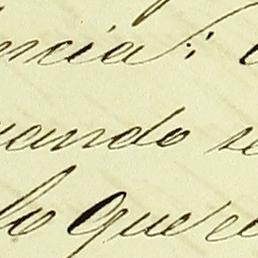 encia; e
uando se
lo que el